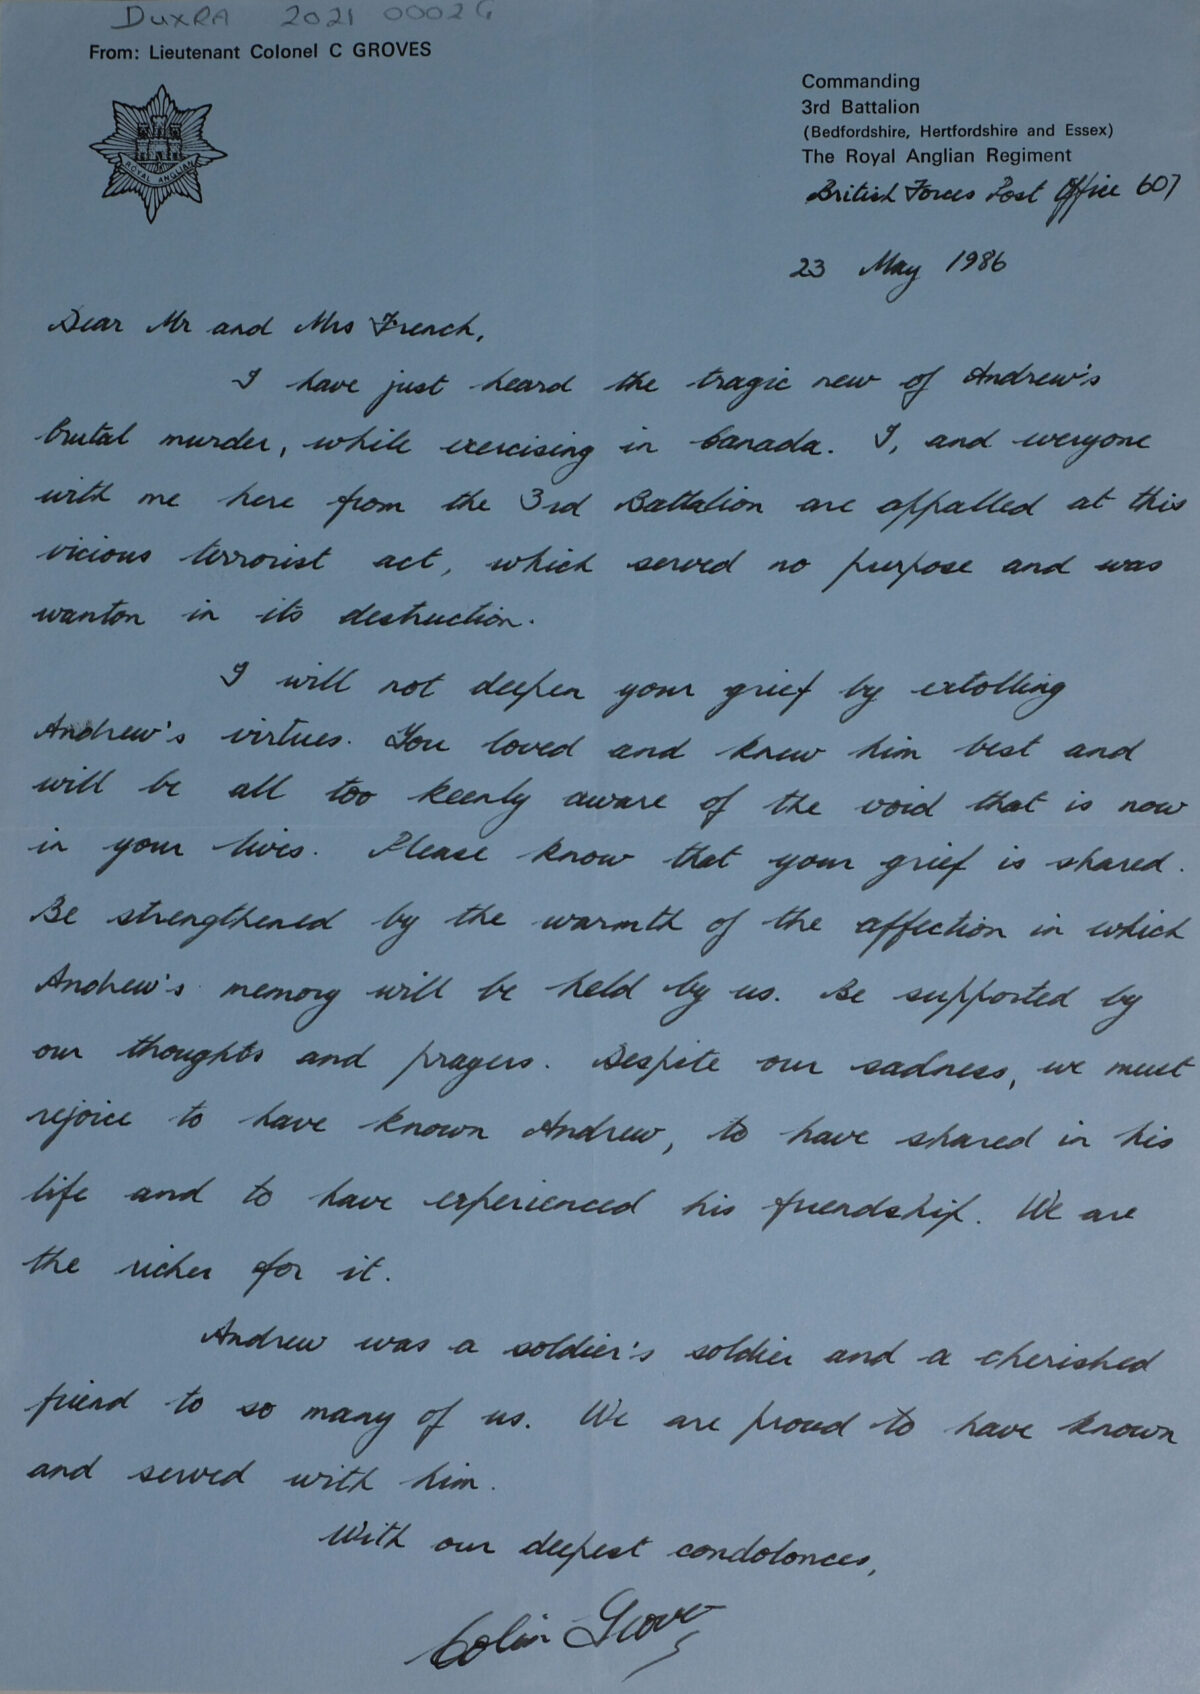 DUXRA 2021 0002G
From: Lieutenant Colonel C GROVES
ROYAL ANGLIAN
Commanding
3rd Battalion
(Bedfordshire, Hertfordshire and Essex)
The Royal Anglian Regiment
British Forces Post Office 607
23 May 1986
Dear Mr and Mrs French,
I have just heard the tragic new of Andrew's
brutal murder, while exercising in Canada. I, and everyone
with me here from the 3rd Battalion are appalled at this
vicious terrorist act, which served no purpose and was
wanton in its destruction.
I will not deepen your grief by extolling
Andrew's virtues. You loved and knew him best and
will be all too keenly aware of the void that is now
in your lives. Please know that your grief is shared.
Be strengthened by the warmth of the affection in which
Andrew's memory will be held by us. Be supported by
our thoughts and prayers. Despite our sadness, we must
rejoice to have known Andrew, to have shared in his
life and to have experienced his friendship. We are
the richer for it.
Andrew was a soldier's soldier and a cherished
friend to so many of us. We are proud to have known
and served with him.
With our deepest condolonces,
Colin Groves